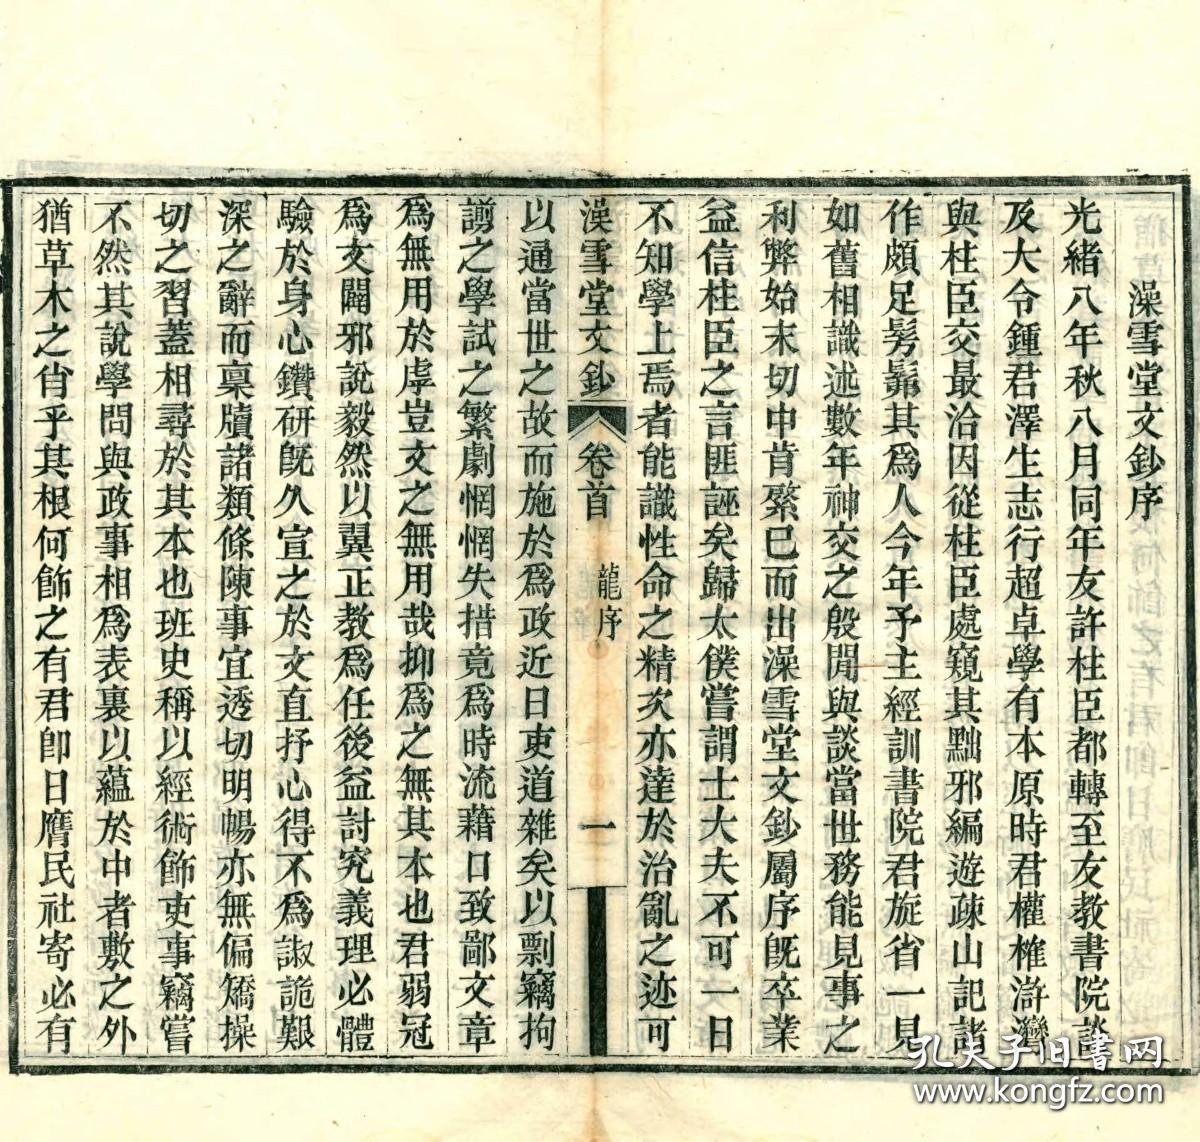 澡雪堂文鈔序
光緒八年秋八月同年友許柱臣都轉至友教書院談
及大令鍾君澤生志行超卓學有本原時君權榷滸灣
與柱臣交最洽因從柱臣處窺其黜邪編遊疎山記諸
作頗足髣髴其爲人今年予主經訓書院君旋省一見
如舊相識述數年神交之殷閒與談當世務能見事之
利弊始末切中肯綮已而出澡雪堂文鈔屬序旣卒業
益信柱臣之言匪誣矣歸太僕嘗謂士大夫不可一日
不知學上焉者能識性命之精次亦達於治亂之迹可
澡雪堂文鈔 卷首 龍序 一
以通當世之故而施於爲政近日吏道雜矣以剽竊拘
謭之學試之繁劇惘惘失措竟爲時流藉口致鄙文章
爲無用於虖豈文之無用哉抑爲之無其本也君弱冠
爲文闢邪說毅然以翼正教爲任後益討究義理必體
驗於身心鑽研旣久宣之於文直抒心得不爲諔詭艱
深之辭而稟牘諸類條陳事宜透切明暢亦無偏矯操
切之習蓋相尋於其本也班史稱以經術飾吏事竊嘗
不然其說學問與政事相爲表裏以蘊於中者敷之外
猶草木之肖乎其根何飾之有君卽日膺民社寄必有
孔夫子旧书网
www.kongfz.com